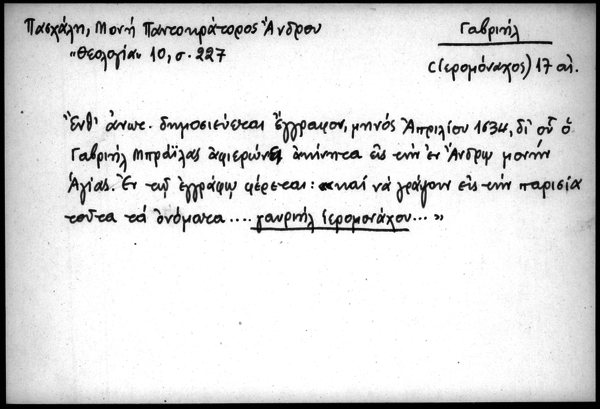 Πασχάλη, Μονή Παντοκράτορος Ἄνδρου
"Θεολογία" 10, σ. 227
Γαβριήλ
(ἱερομόναχος) 17 αἰ.
Ἔνθ' ἀνωτ. δημοσιεύεται ἔγγραφον, μηνός Ἀπριλίου 1634, δι' οὗ ὁ
Γαβριήλ Μπραΐλας ἀφιερώνει ἀκίνητα εἰς τήν ἐν Ἄνδρῳ μονήν
Ἁγίας. Ἐν τῷ ἐγγράφῳ φέρεται: «καί νά γράφουν εἰς τήν παρισία
τοῦτα τά ὀνόματα.... γαυριήλ ἱερομονάχου...»